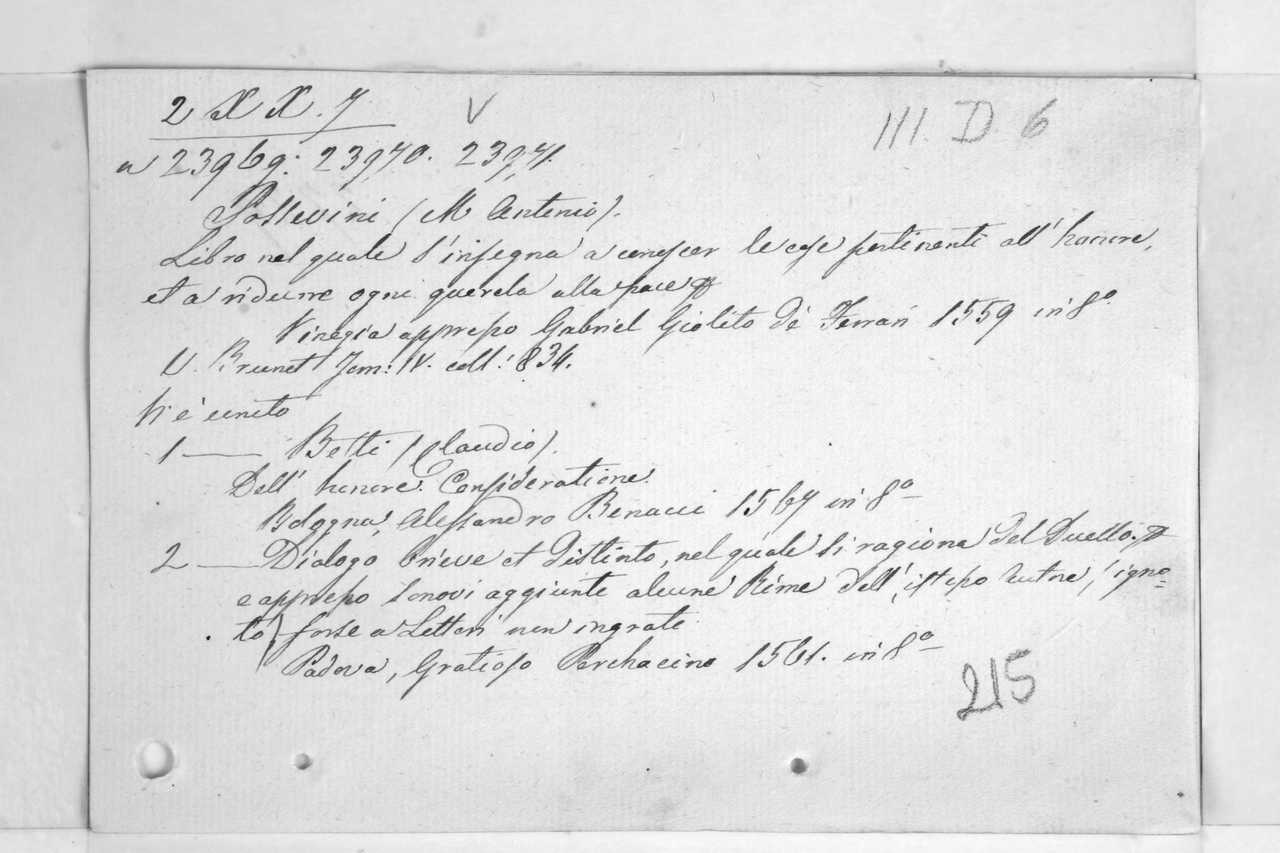 2 XX. 7
V
III. D. 6
n 23969: 23970. 23971.
Possevini (M Antonio).
Libro nel quale s'insegna a conoscer le cose pertinenti all' honore,
et a ridurre ogni querela alla pace
Vinegia appresso Gabriel Giolito dè Ferrari 1559 in 8º
V. Brunet Tom: IV. coll: 834.
Vi è unito
1 — Betti (Claudio).
Dell' honore Consideratione
Bologna, Alessandro Benacci 1567 in 8º
2 — Dialogo brieve et distinto, nel quale si ragiona del Duello.
e appresso sonovi aggiunte alcune Rime dell', istesso Autore, (igno-
to) forse a Lettori non ingrate
Padova, Gratioso Perchacino 1561. in 8º
215